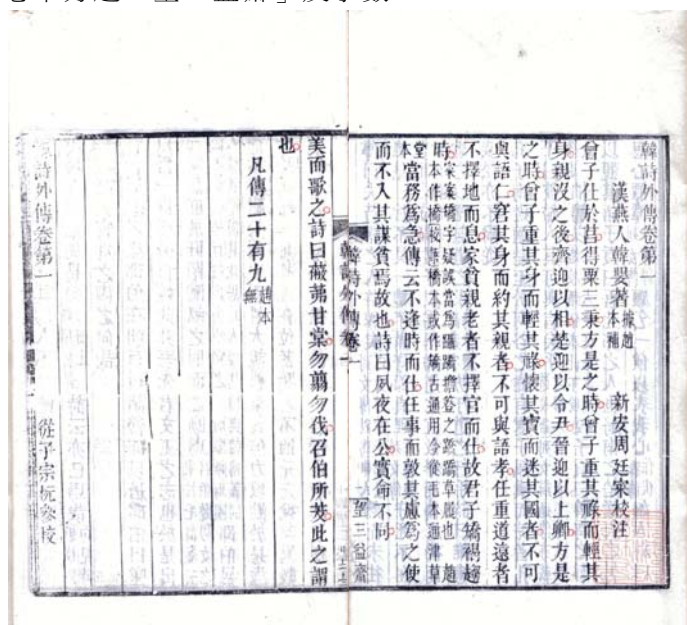 韓詩外傳卷第一
漢燕人韓嬰著據趙本補 新安周廷寀校注
曾子仕於莒得粟三秉方是之時曾子重其祿而輕其
身親沒之後齊迎以相楚迎以令尹晉迎以上卿方是
之時曾子重其身而輕其祿懷其寶而迷其國者不可
與語仁窘其身而約其親者不可與語孝任重道遠者
不擇地而息家貧親老者不擇官而仕故君子矯褐趨
時
本堂當務爲急傳云不逢時而仕任事而敦其慮爲之使
而不入其謀貧焉故也詩曰夙夜在公實命不同
韓詩外傳卷一
望三益齋
美而歌之詩曰蔽茀甘棠勿翦勿伐召伯所茇此之謂
也
凡傳二十有九
詩外傳卷第一
從子宗杬參校